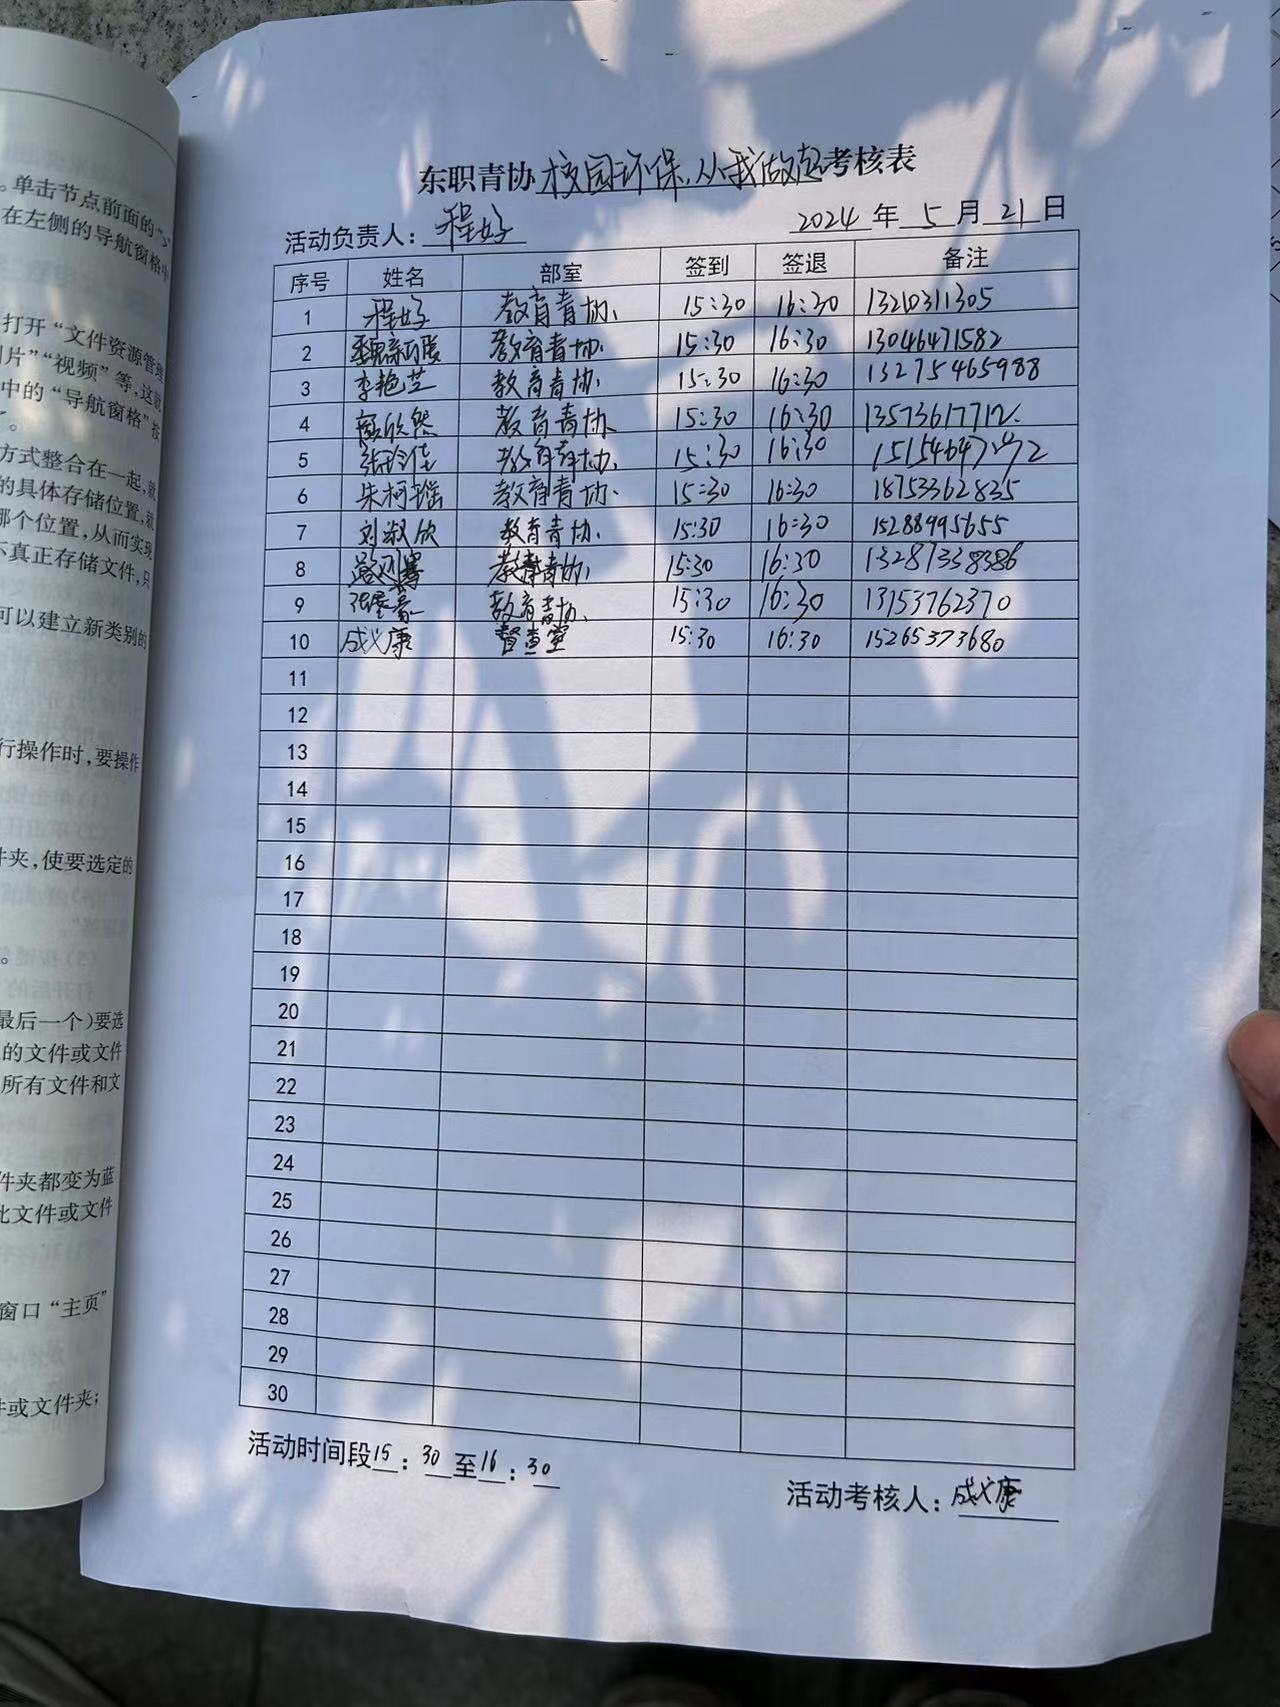 东职青协校园环保,从我做起考核表
活动负责人：程好 2024年5月21日
序号 姓名 部室 签到 签退 备注
1 程好 教育青协 15:30 16:30 13210311305
2 教育青协 15:30 16:30 13046471582
3 李艳芝 教育青协 15:30 16:30 13275465988
4 欣然 教育青协 15:30 16:30 13573617712
5 张玲佳 教育青协 15:30 16:30
6 朱柯瑶 教育青协 15:30 16:30 18753362835
7 刘淑欣 教育青协 15:30 16:30 15288995655
8 教育青协 15:30 16:30 13287338386
9 教育青协 15:30 16:30 13153762370
10 成义康 督查室 15:30 16:30 15265373680
11
12
13
14
15
16
17
18
19
20
21
22
23
24
25
26
27
28
29
30
活动时间段15：30至16：30
活动考核人：成义康
。单击节点前面的“>”
在左侧的导航窗格中
打开“文件资源管理
图片”“视频”等,这就
中的“导航窗格”按
。
方式整合在一起,就
的具体存储位置,就
那个位置,从而实现
不真正存储文件,只
可以建立新类别的
行操作时,要操作
件夹,使要选定的
。
最后一个)要选
的文件或文件
所有文件和文
件夹都变为蓝
此文件或文件
窗口“主页”
件或文件夹;